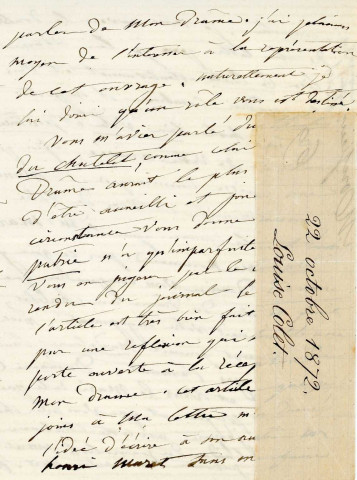 parler de mon Drame. j'ai
moyen de l'intéresser à la représentation
de cet ouvrage. naturellement je
lui dirai qu'un rôle vous est destiné.
Vous m'aviez parlé du
du chatelet, comme celui
Drame aurait le plus
d'être accueilli et
circonstance vous donne
patrie n'a qu'imparfaite
Vous en jugerez par le
rendu du journal le
l'article est très bien fait
par une reflexion qui
porte ouverte à la récep
mon drame. cet article
joins à ma lettre m
l'idée d'écrire à son au
henri maret sans m
22 octobre 1872.
Louise Colet.